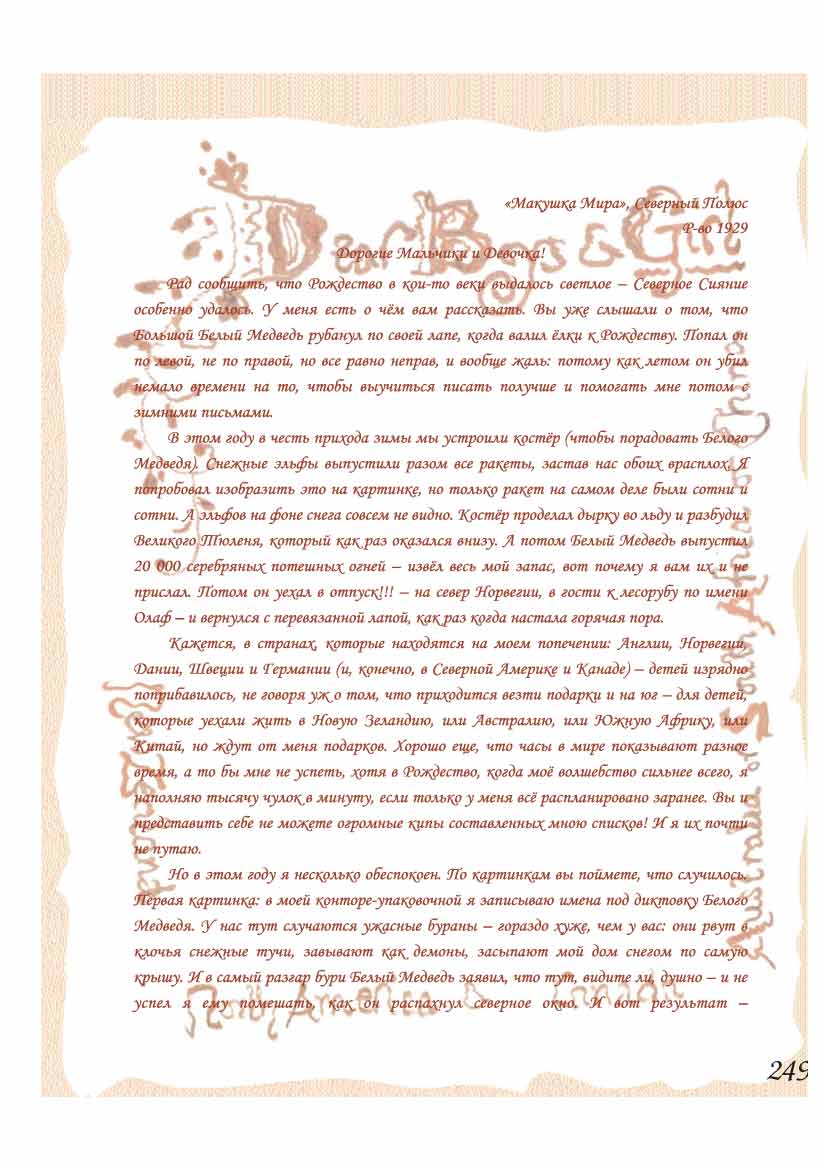 «Макушка Мира», Северный Полюс
Р-во 1929
Dear Boys & Girl
Дорогие Мальчики и Девочка!
Рад сообщить, что Рождество в кои-то веки выдалось светлое – Северное Сияние
особенно удалось. У меня есть о чём вам рассказать. Вы уже слышали о том, что
Большой Белый Медведь рубанул по своей лапе, когда валил ёлки к Рождеству. Попал он
по левой, не по правой, но все равно неправ, и вообще жаль: потому как летом он убил
немало времени на то, чтобы выучиться писать получше и помогать мне потом с
зимними письмами.
В этом году в честь прихода зимы мы устроили костёр (чтобы порадовать Белого
Медведя). Снежные эльфы выпустили разом все ракеты, застав нас обоих врасплох. Я
попробовал изобразить это на картинке, но только ракет на самом деле были сотни и
сотни. А эльфов на фоне снега совсем не видно. Костёр проделал дырку во льду и разбудил
Великого Тюленя, который как раз оказался внизу. А потом Белый Медведь выпустил
20 000 серебряных потешных огней – извёл весь мой запас, вот почему я вам их и не
прислал. Потом он уехал в отпуск!!! – на север Норвегии, в гости к лесорубу по имени
Олаф – и вернулся с перевязанной лапой, как раз когда настала горячая пора.
Кажется, в странах, которые находятся на моем попечении: Англии, Норвегии,
Дании, Швеции и Германии (и, конечно, в Северной Америке и Канаде) – детей изрядно
поприбавилось, не говоря уж о том, что приходится везти подарки и на юг – для детей,
которые уехали жить в Новую Зеландию, или Австралию, или Южную Африку, или
Китай, но ждут от меня подарков. Хорошо еще, что часы в мире показывают разное
время, а то бы мне не успеть, хотя в Рождество, когда моё волшебство сильнее всего, я
наполняю тысячу чулок в минуту, если только у меня всё распланировано заранее. Вы и
представить себе не можете огромные кипы составленных мною списков! И я их почти
не путаю.
Но в этом году я несколько обеспокоен. По картинкам вы поймете, что случилось.
Первая картинка: в моей конторе-упаковочной я записываю имена под диктовку Белого
Медведя. У нас тут случаются ужасные бураны – гораздо хуже, чем у вас: они рвут в
клочья снежные тучи, завывают как демоны, засыпают мой дом снегом по самую
крышу. И в самый разгар бури Белый Медведь заявил, что тут, видите ли, душно – и не
успел я ему помешать, как он распахнул северное окно. И вот результат –
North America & Canada
Australia or South Africa or China
New Zealand
249